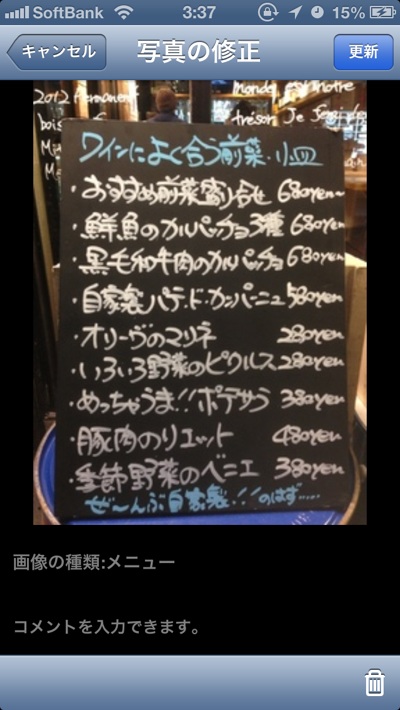 SoftBank 3:37 15%
キャンセル 写真の修正 更新
2012 Permanent
trésor Je
ワインによく合う前菜・小皿
・おすすめ前菜盛り合せ 680yen〜
・鮮魚のカルパッチョ3種 680yen
・黒毛和牛肉のカルパッチョ 680yen
・自家製パテ・ド・カンパーニュ 580yen
・オリーヴのマリネ 280yen
・いろいろ野菜のピクルス 280yen
・めっちゃうま!!ポテサラ 380yen
・豚肉のリエット 480yen
・季節野菜のベニエ 380yen
ぜ〜んぶ自家製!!のはず……
画像の種類:メニュー
コメントを入力できます。